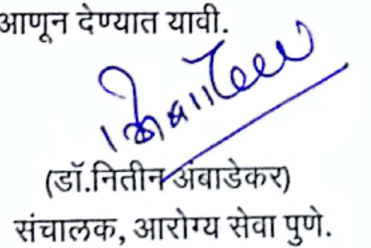 आणून देण्यात यावी.
(डॉ.नितीन अंबाडेकर)
संचालक, आरोग्य सेवा पुणे.